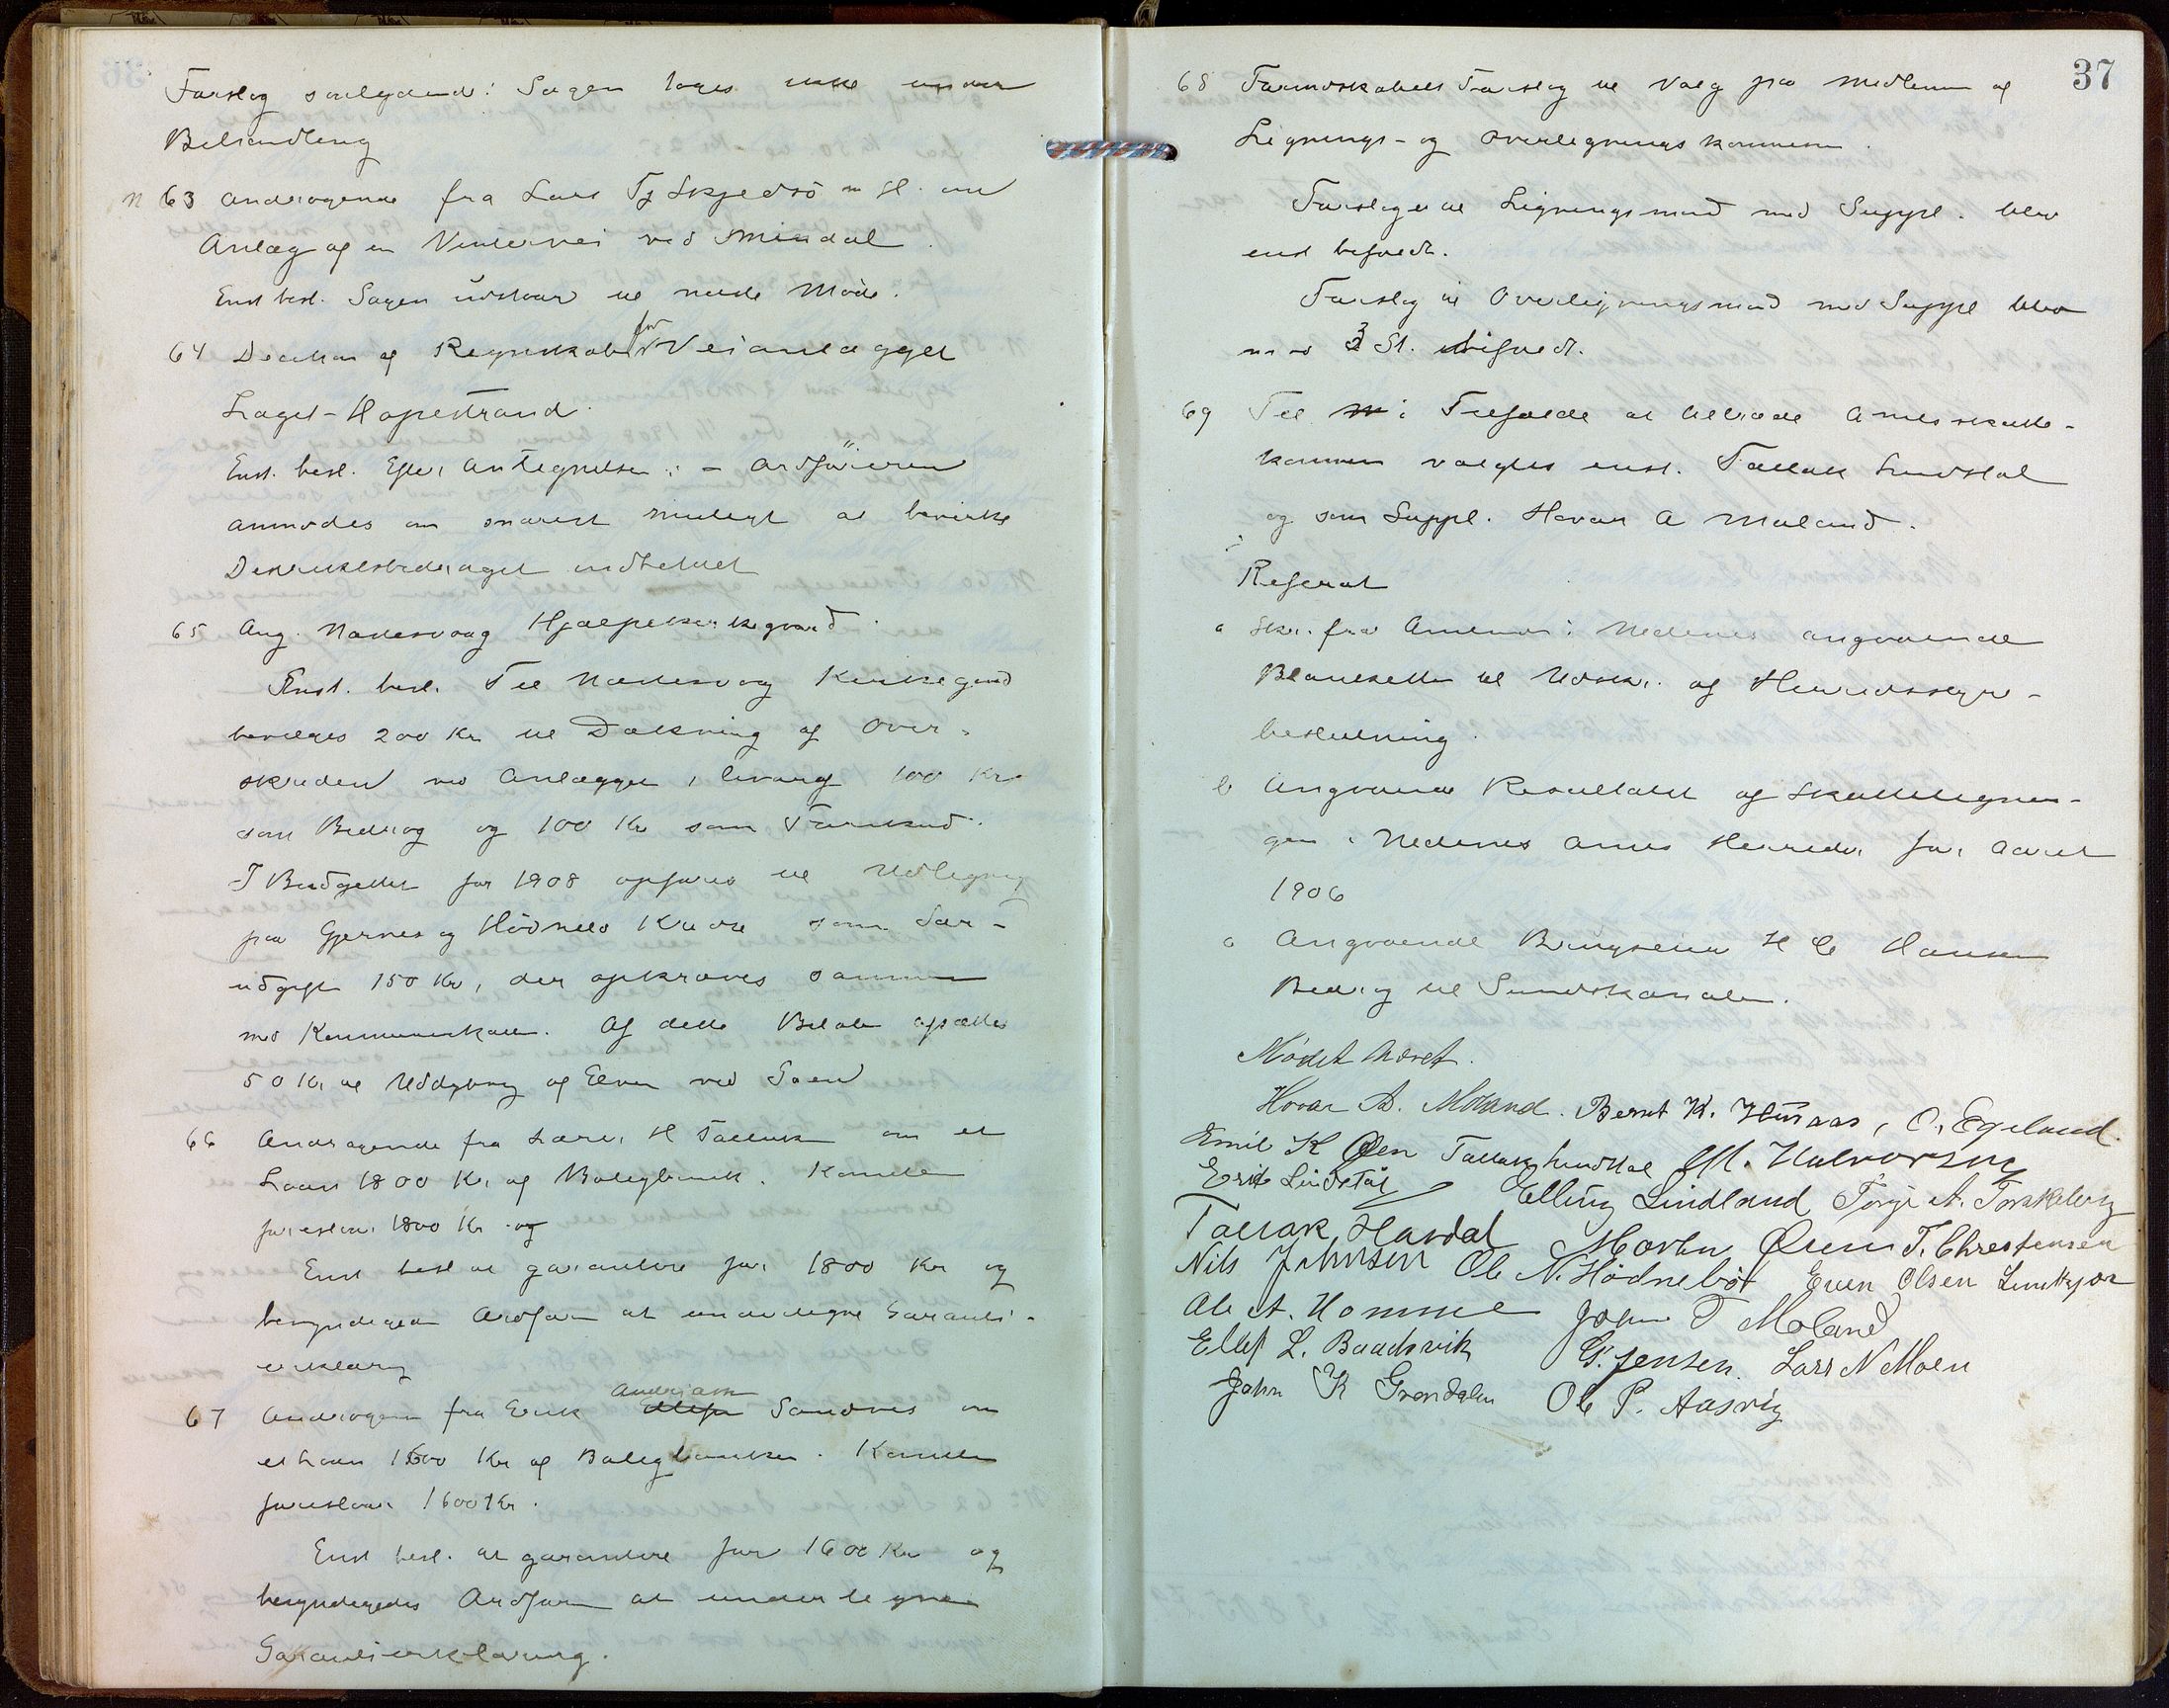 Forslag saalydende: Sagen tages ikke under
Behandling
N 63 Andragende fra Lars Tj Skjedsö m fl. om
Anlæg af en Vintervei ved Smedal.
Enst besl. Sagen udstaar til næste Möde.
64 Decision af Regnskabet for Veianlægget
Laget - Hopestrand.
Enst. besl. Efter Antegnelsen: - Ordföreren
anmodes om snarest muligt at bevirke
Distriktsbidraget indbetalt
65 Ang. Nædesvaag Hjælpekirkegaard.
Enst. besl. Til Nædesvaag Kirkegaard
bevilges 200 Kr til Dækning af Over-
skriden ved Anlægget, hvoraf 100 Kr
som Bidrag og 100 Kr som Forskud.
I Budgettet for 1908 opföres til Udligning
paa Gjernes og Hödnebö Kreds som Sær-
udgift 150 Kr, der opkræves sammen
med Kommuneskatten. Af dette Belöb afsættes
50 Kr til Uddybning af Elven ved Saen
66 Andragende fra Lærer H Tallaksen om et
Laan 1800 Kr af Boligbank. Komiteen
foreslaar 1800 Kr og
Enst besl at garantere for 1800 Kr og
bemyndiges Ordför at undertegne Garanti-
erklæring
67 Andragen fra Erik Ellefsen Andreasen Sandnes om
et Laan 1600 Kr af Boligbanken. Komiteen
foreslaar 1600 Kr.
Enst besl. at garantere for 1600 Kr og
bemyndigedes Ordförer at undertegne
Garantierklæring.
37
68 Formandskabets Forslag til Valg paa Medlemmer af
Lignings- og Overligningskommission.
Forslaget til Ligningsmænd med Suppl. blev
enst bifaldt.
Forslag til Overligningsmænd med Suppl blev
med 3 St. bifaldt.
69 Til i Tilfælde at tiltræde Amtsskatte-
kommission valgtes enst. Tallak Lindstøl
og som Suppl. Hovar A Moland.
Referat
a Skr. fra Amtmanden i Nedenes angaaende
Blanketter til Udskr. af Herredsstyre-
beslutning.
b Angaaende Resultatet af Skatteligning-
gen i Nedenes Amts Herreder for Aaret
1906
c Angaaende Brugseier H C Hansen
Bidrag til Sundskanalen.
Mödet hævet.
Hovar A. Moland. Bernt K. Husaas, O. Egeland.
Emil K Øen Tallak Lindstøl M. Halvorsen
Erik Lindstøl Elling Lindland Torje A. Torskeberg
Tallak Havdal Morten Øien T. Christensen
Nils Johnsen Ole N. Hödnebö Even Olsen Lunthjær
Ole A. Homme John T Moland
Ellef L. Baadsvik G. Jensen. Lars N Moen
John K Grendalen Ole P. Aasvig